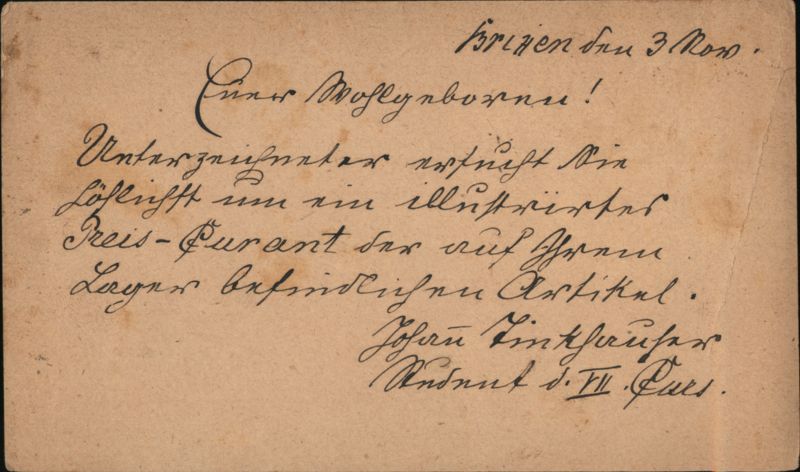 Brixen den 3 Nov.
Euer Wohlgeboren!
Unterzeichneter ersucht Sie
höflichst um ein illustrirtes
Preis-Curant der auf Ihrem
Lager befindlichen Artikel.
Johann Tinkhauser
Student d. VII. Curs.